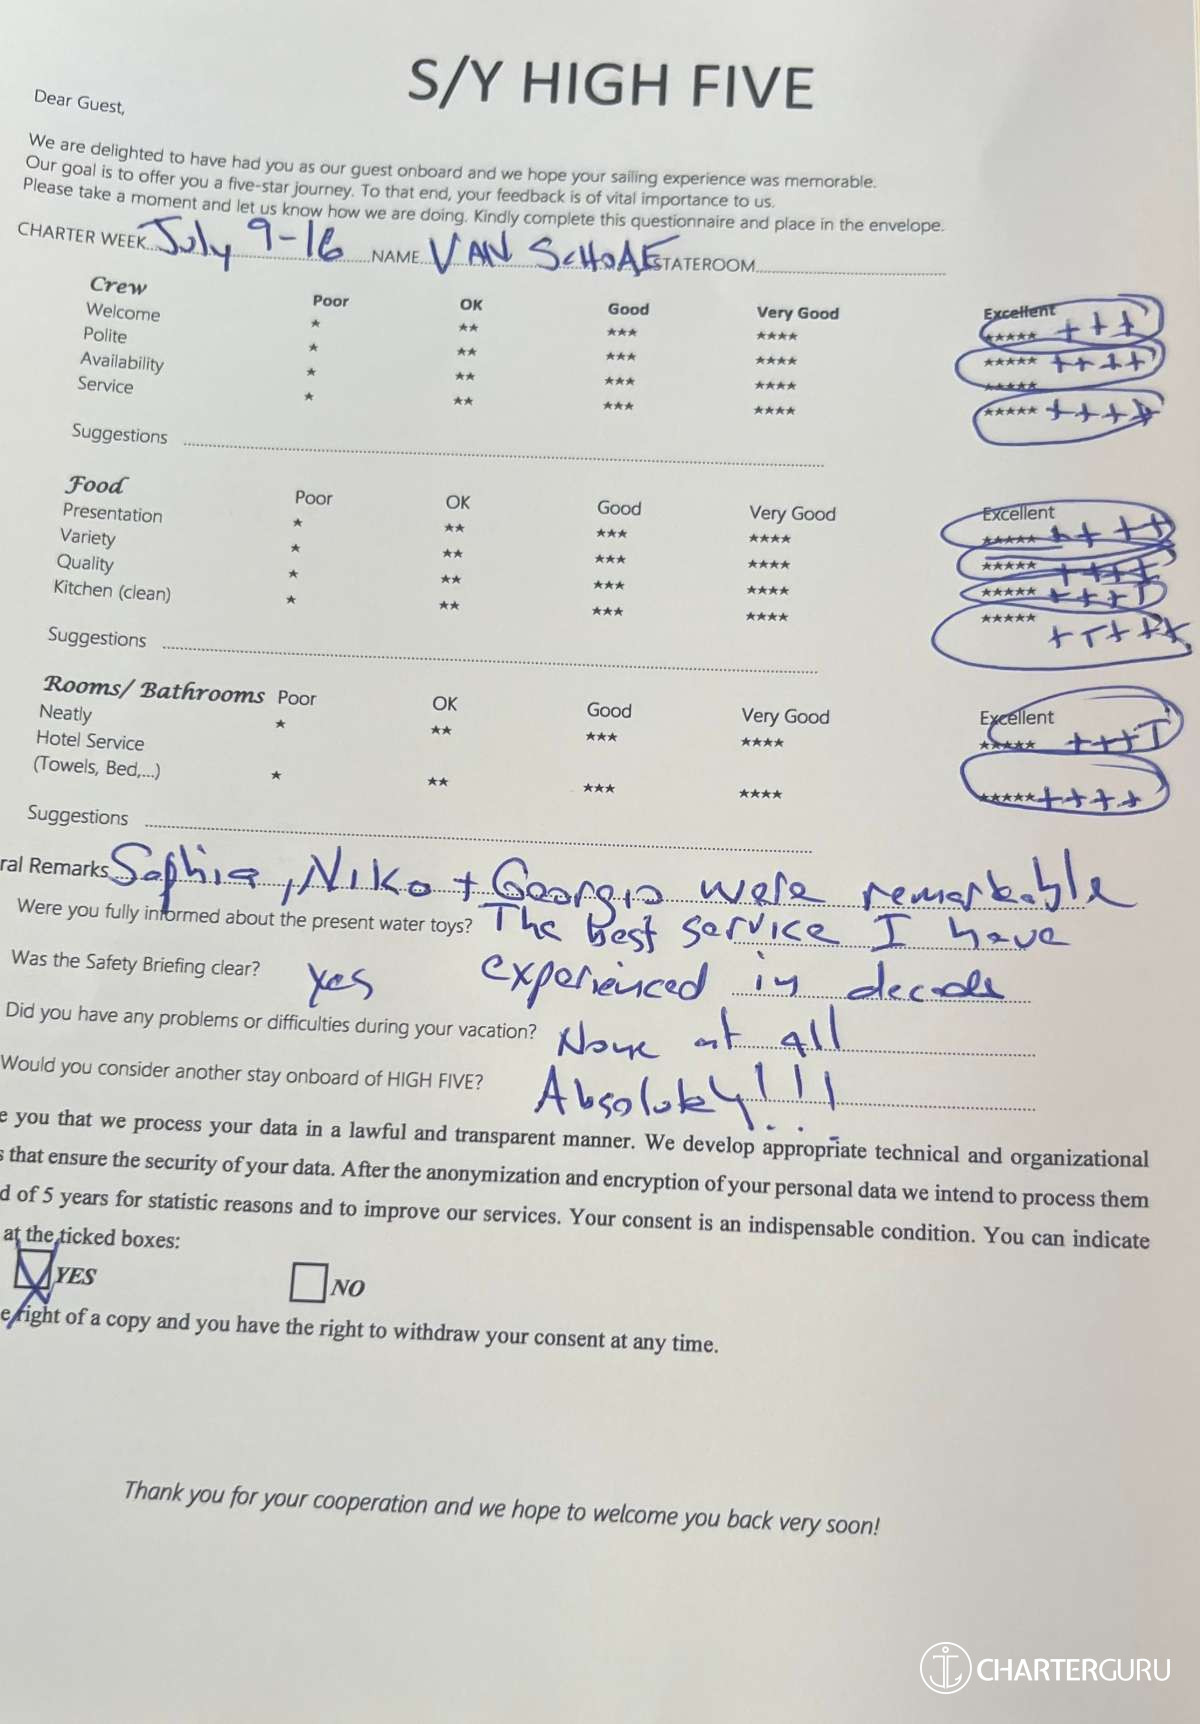 S/Y HIGH FIVE
Dear Guest,
We are delighted to have had you as our guest onboard and we hope your sailing experience was memorable.
Our goal is to offer you a five-star journey. To that end, your feedback is of vital importance to us.
Please take a moment and let us know how we are doing. Kindly complete this questionnaire and place in the envelope.
CHARTER WEEK July 9-16 NAME VAN STATEROOM
Crew Poor OK Good Very Good Excellent
Welcome ★ ★★ ★★★ ★★★★ ★★★★★ +++
Polite ★ ★★ ★★★ ★★★★ ★★★★★ ++++
Availability ★ ★★ ★★★ ★★★★ ★★★★★
Service ★ ★★ ★★★ ★★★★ ★★★★★ ++++
Suggestions
Food Poor OK Good Very Good Excellent
Presentation ★ ★★ ★★★ ★★★★ ★★★★★ ++++
Variety ★ ★★ ★★★ ★★★★ ★★★★★ ++++
Quality ★ ★★ ★★★ ★★★★ ★★★★★ ++++
Kitchen (clean) ★ ★★ ★★★ ★★★★ ★★★★★ +++++
Suggestions
Rooms/ Bathrooms Poor OK Good Very Good Excellent
Neatly ★ ★★ ★★★ ★★★★ ★★★★★ ++++
Hotel Service
(Towels, Bed,...) ★ ★★ ★★★ ★★★★ ★★★★★ ++++
Suggestions
ral Remarks Sophia, Niko + Georgio were remarkable
Were you fully informed about the present water toys? The best service I have
Was the Safety Briefing clear? Yes experienced in decade
Did you have any problems or difficulties during your vacation? None at all
Would you consider another stay onboard of HIGH FIVE? Absolutely!!!
e you that we process your data in a lawful and transparent manner. We develop appropriate technical and organizational
s that ensure the security of your data. After the anonymization and encryption of your personal data we intend to process them
d of 5 years for statistic reasons and to improve our services. Your consent is an indispensable condition. You can indicate
at the ticked boxes:
YES NO
e right of a copy and you have the right to withdraw your consent at any time.
Thank you for your cooperation and we hope to welcome you back very soon!
CHARTERGURU